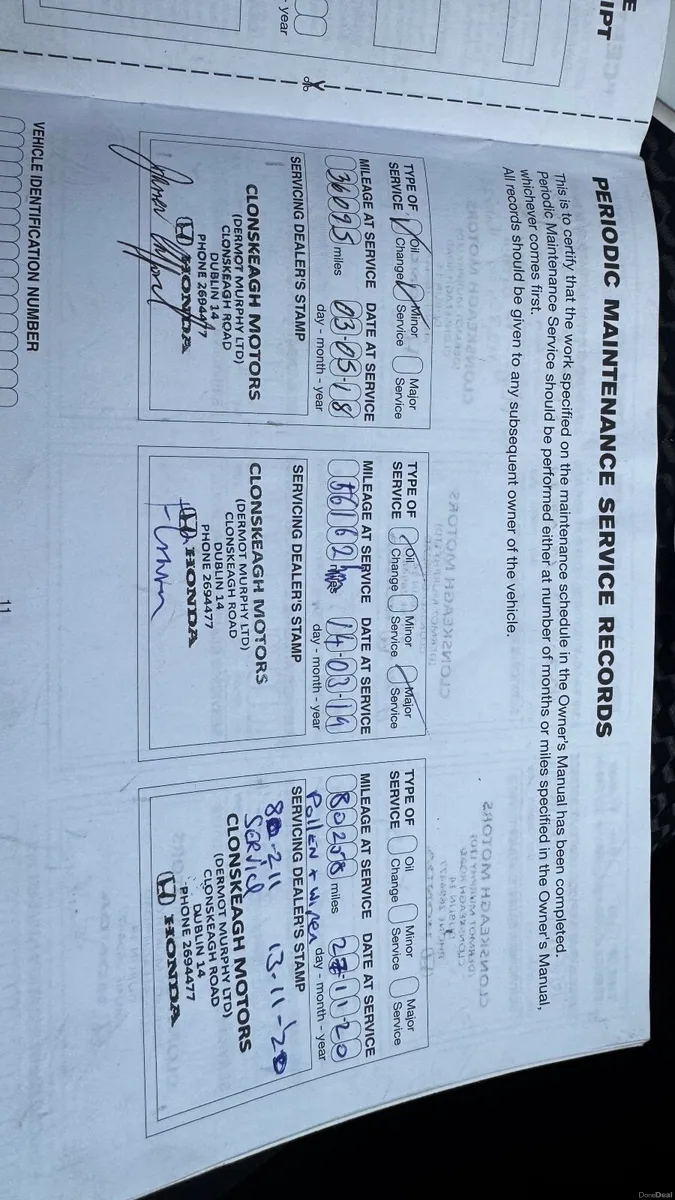 E
IPT
year
PERIODIC MAINTENANCE SERVICE RECORDS
This is to certify that the work specified on the maintenance schedule in the Owner's Manual has been completed.
Periodic Maintenance Service should be performed either at number of months or miles specified in the Owner's Manual,
whichever comes first.
All records should be given to any subsequent owner of the vehicle.
TYPE OF SERVICE Oil Change Minor Service Major Service
MILEAGE AT SERVICE DATE AT SERVICE
36095 miles 03-05-18
day - month - year
SERVICING DEALER'S STAMP
CLONSKEAGH MOTORS
(DERMOT MURPHY LTD)
CLONSKEAGH ROAD
DUBLIN 14
PHONE 2694477
HONDA
TYPE OF SERVICE Oil Change Minor Service Major Service
MILEAGE AT SERVICE DATE AT SERVICE
56162 km miles 14-03-19
day - month - year
SERVICING DEALER'S STAMP
CLONSKEAGH MOTORS
(DERMOT MURPHY LTD)
CLONSKEAGH ROAD
DUBLIN 14
PHONE 2694477
HONDA
TYPE OF SERVICE Oil Change Minor Service Major Service
MILEAGE AT SERVICE DATE AT SERVICE
80258 miles 27-11-20
Pollen + wiper day - month - year
SERVICING DEALER'S STAMP
80-211 13-11-'20
Service
CLONSKEAGH MOTORS
(DERMOT MURPHY LTD)
CLONSKEAGH ROAD
DUBLIN 14
PHONE 2694477
HONDA
VEHICLE IDENTIFICATION NUMBER
11
DoneDeal